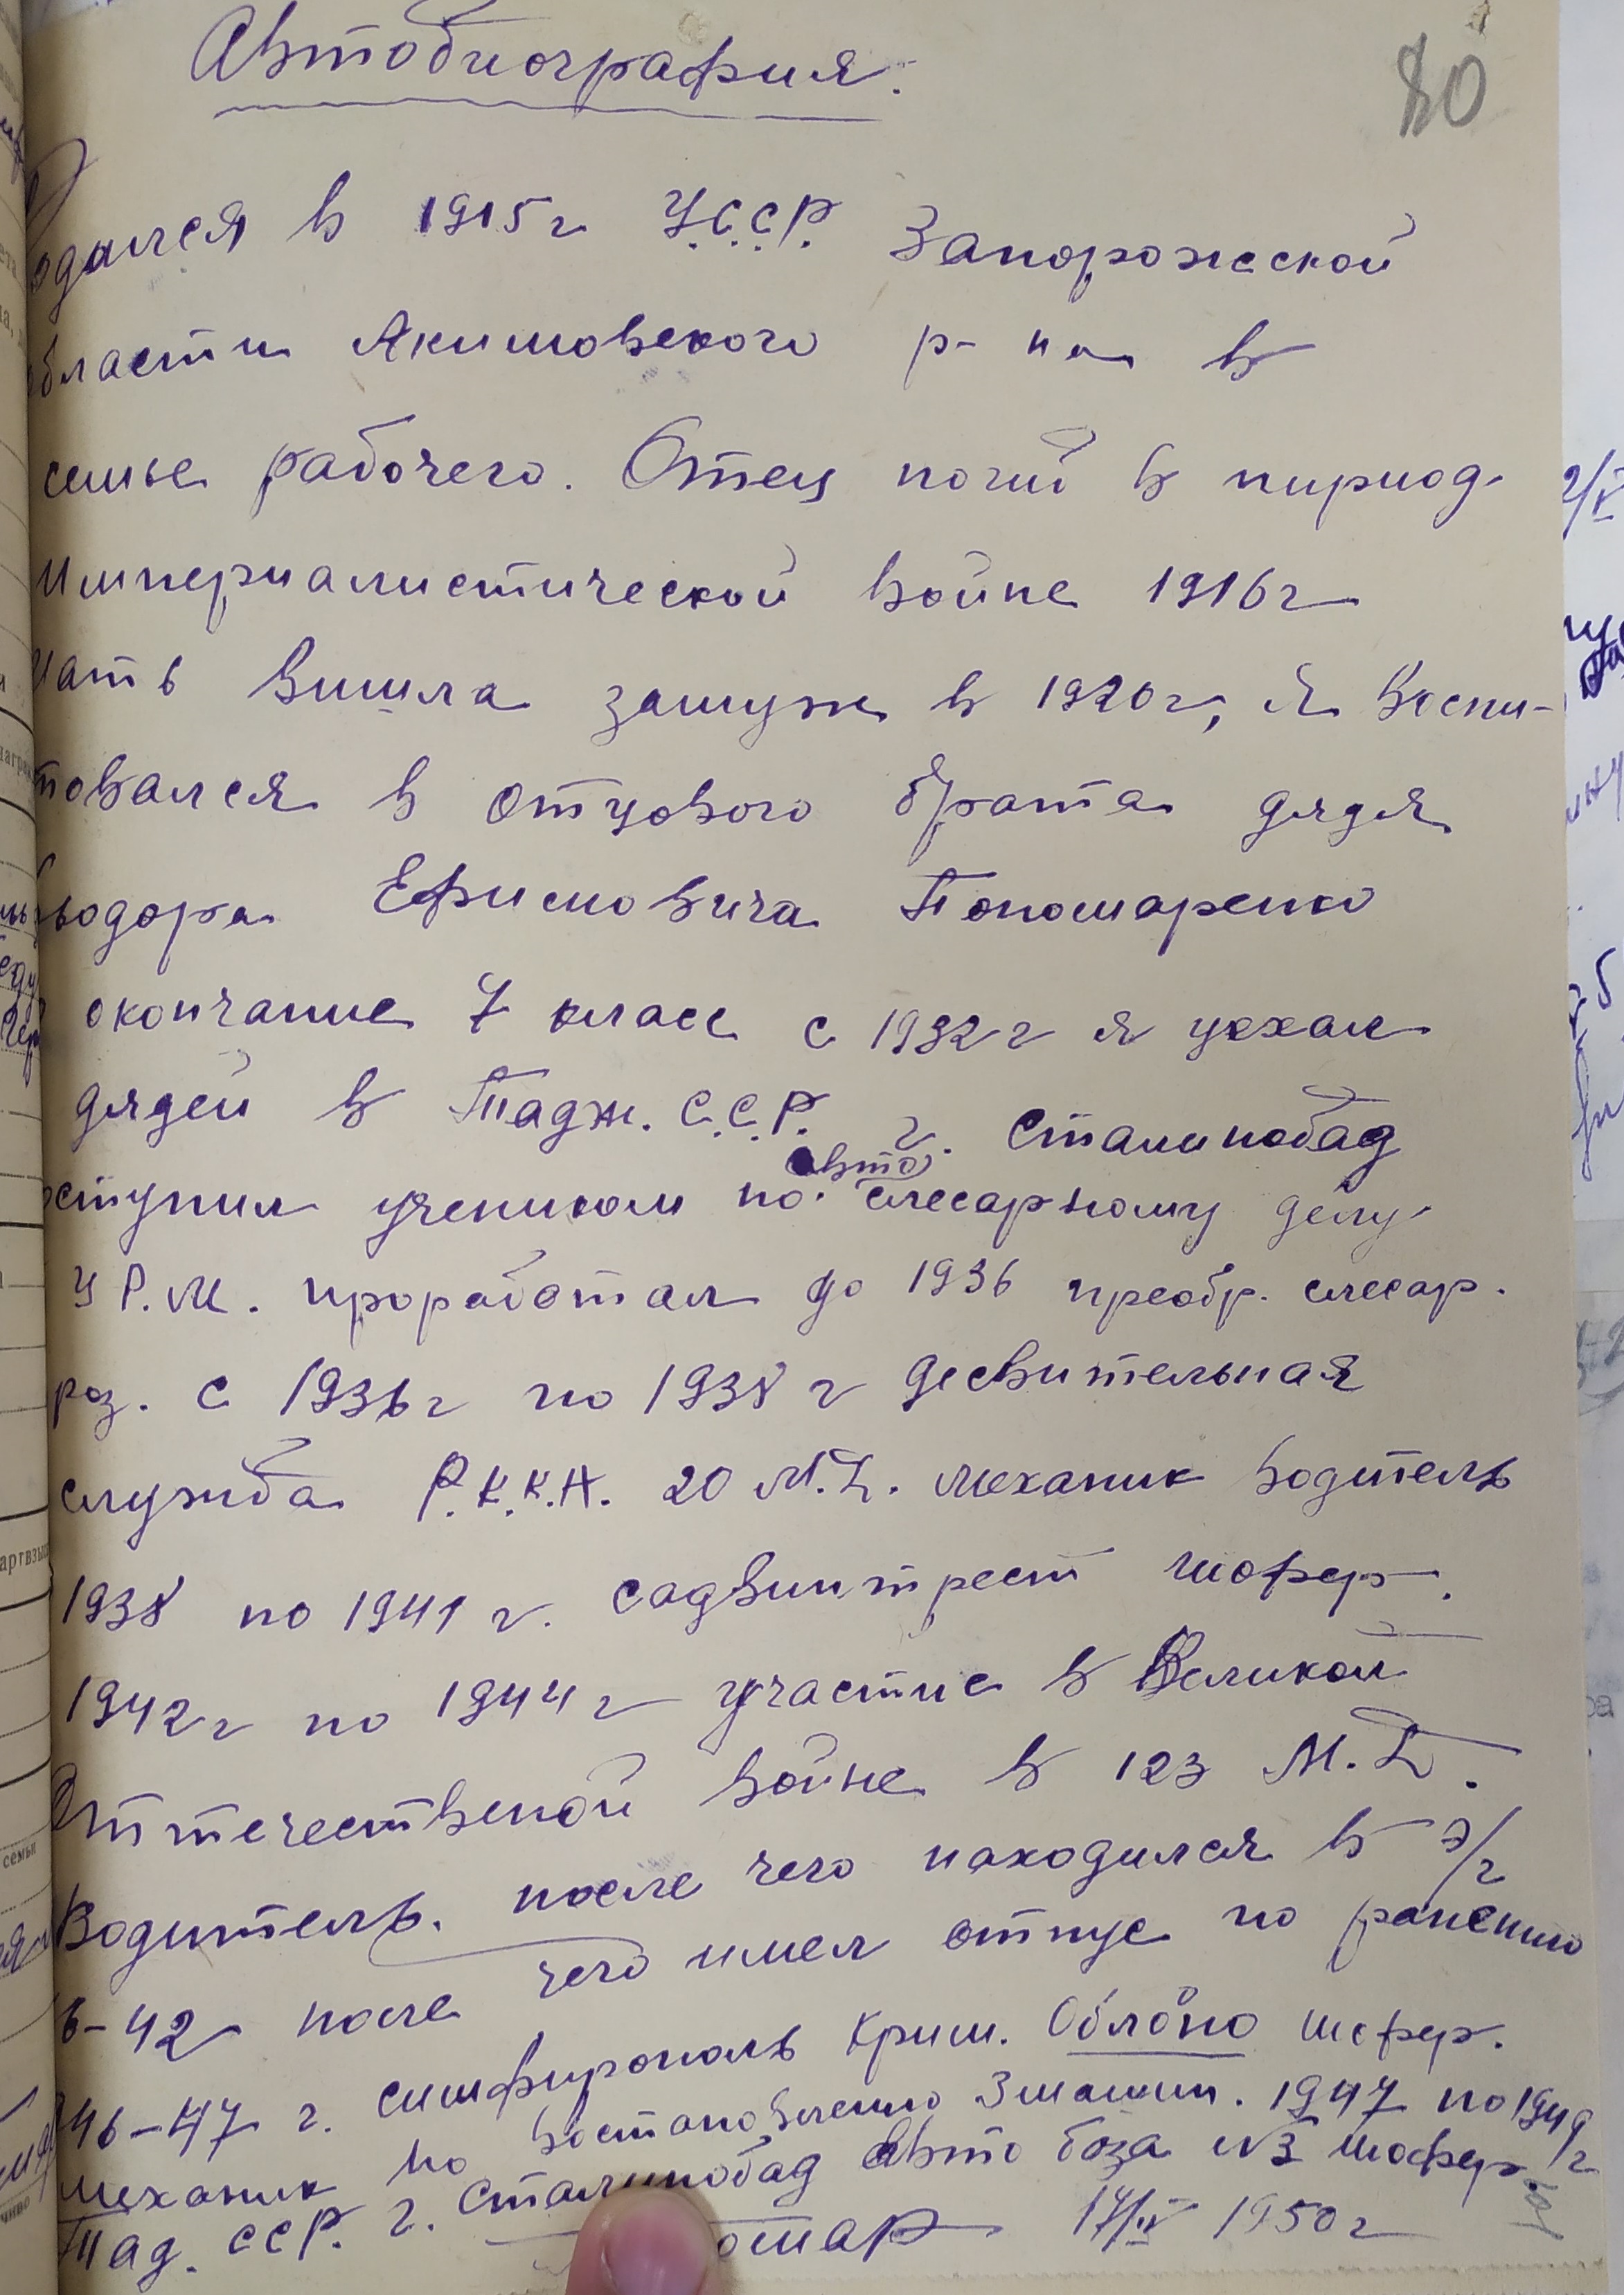 Автобиография.
80
одился в 1915г У.С.С.Р. Запорожской
бласти Акимовского р-на в
семье рабочего. Отец погиб в пириод
Империалистической войне 1916г
Мать вишла замуж в 1920г, Я воспи-
товался в отцового брата дядя
ьодора Ефимовича Пономаренко
окончание 7 класс с 1932г я уехал
дядей в Тадж. С.С.Р. г. Сталинобад
авто
оступил учеником по слесарному делу
У Р.М. проработал до 1936 преобр. слесар.
раз. С 1936г по 1938г десвительная
служба Р.К.К.А. 20 М.Б. механик водитель
1938 по 1941г. садвинтрест шофер.
1942г по 1944г участие в Великой
Оттечественой войне в 123 М.Б.
Водитель. после чего находился в э/г
6-42 после чего имел отпус по ранению
46-47 г. симфирополь Крим. Облоно шофер.
механик по востановлению 3 машин. 1947 по 1949г
Тад. ССР. г. Сталинобад Авто база №3 шофер.
омар 17/IV 1950г